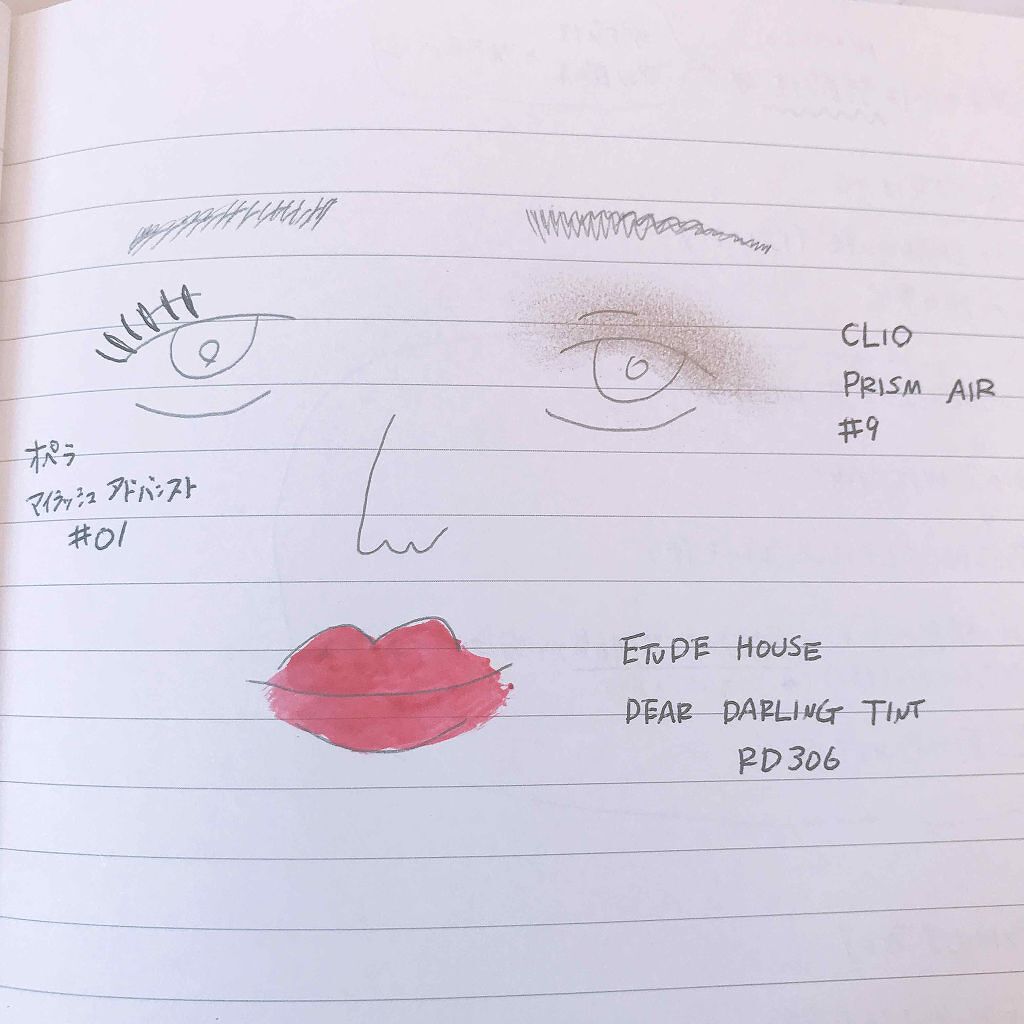 CLIO
PRISM AIR
#9
オペラ
マイラッシュ アドバンスト
#01
ETUDE HOUSE
DEAR DARLING TINT
RD306